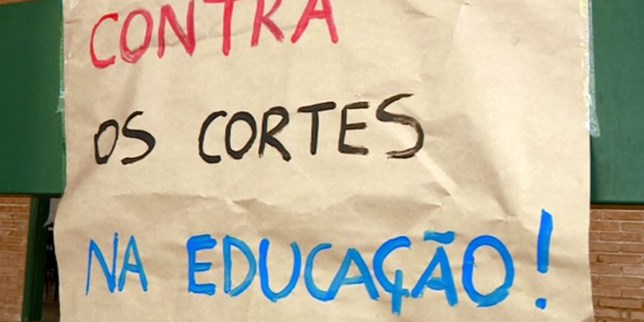 CONTRA
OS CORTES
NA EDUCAÇÃO!